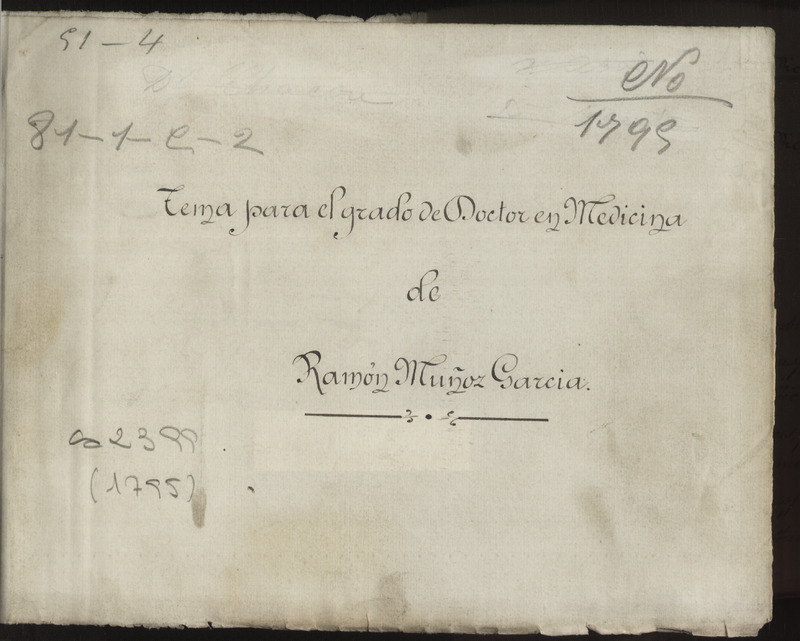 51-4
No
1795
81-1-C-2
Tema para el grado de Doctor en Medicina
de
Ramón Muñoz Garcia.
2399
(1795)